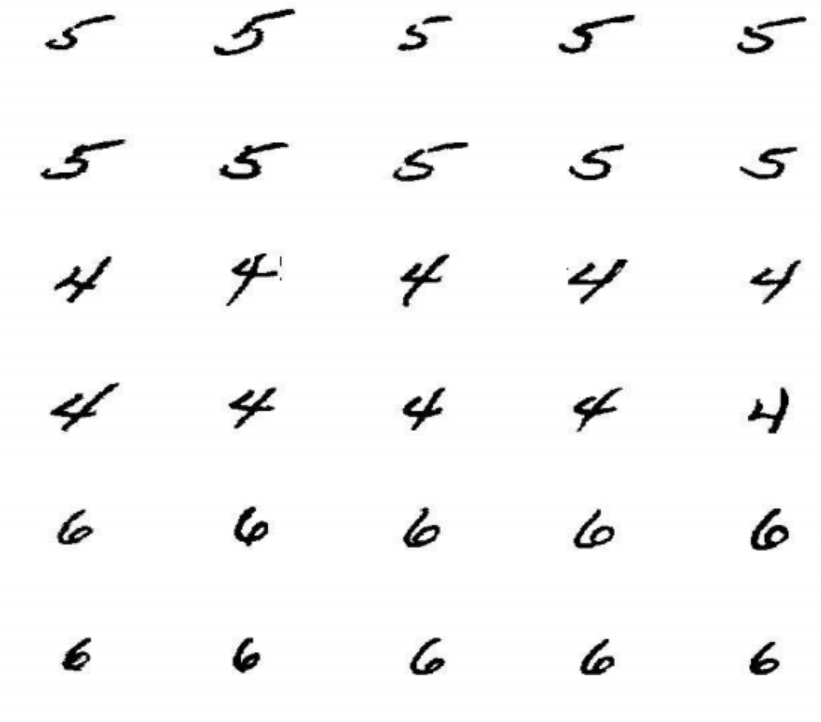 5 5 5 5 5
5 5 5 5 5
4 4 4 4 4
4 4 4 4 4
6 6 6 6 6
6 6 6 6 6